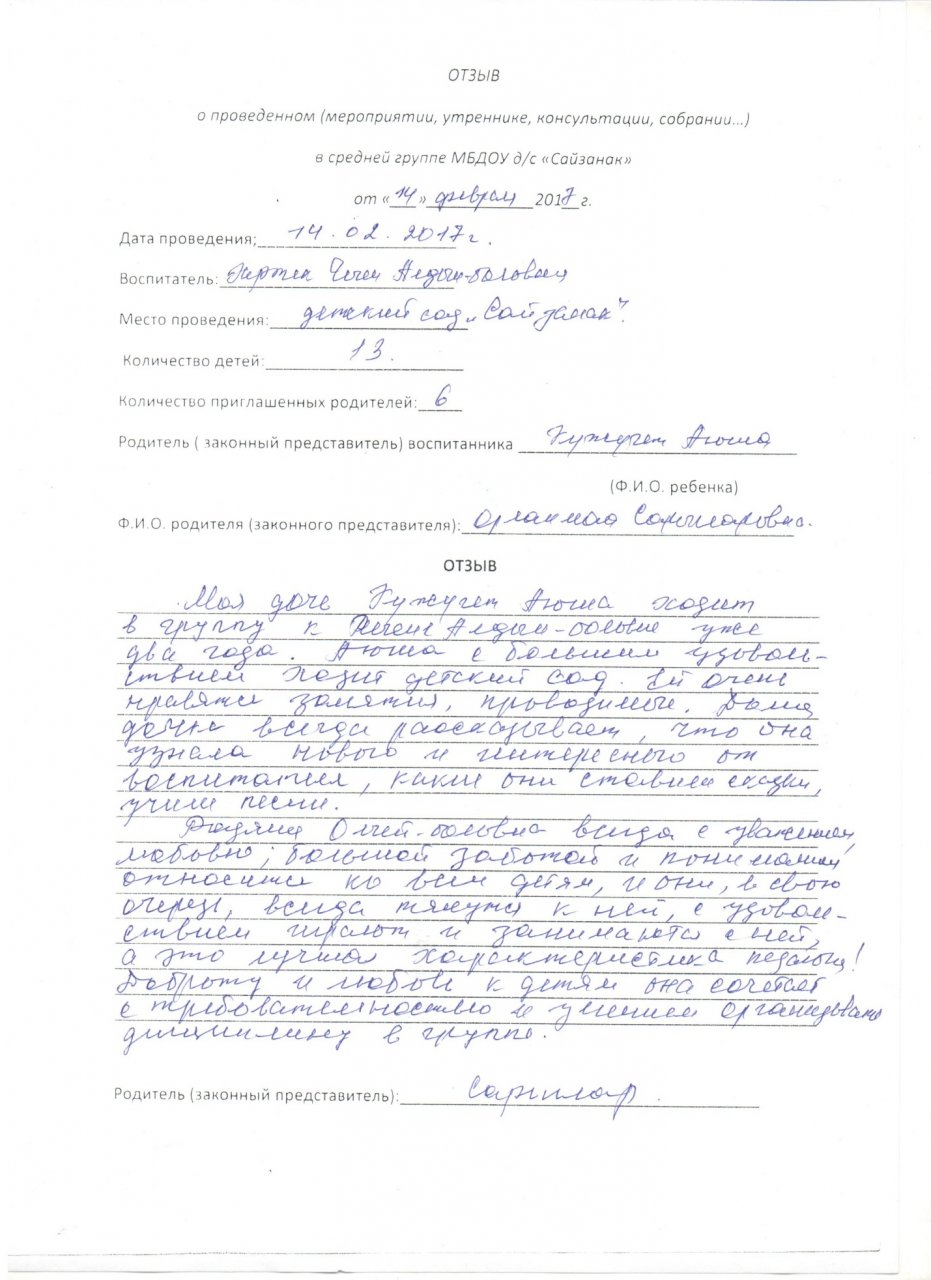 ОТЗЫВ
о проведенном (мероприятии, утреннике, консультации, собрании...)
в средней группе МБДОУ д/с «Сайзанак»
от «14» февраля 2017 г.
Дата проведения; 14.02.2017г.
Воспитатель: Чечен Алдын-ооловна
Место проведения: детский сад „Сайзанак".
Количество детей: 13.
Количество приглашенных родителей: 6
Родитель ( законный представитель) воспитанника Кужугет Аюша
(Ф.И.О. ребенка)
Ф.И.О. родителя (законного представителя):
ОТЗЫВ
Моя дочь Кужугет Аюша ходит
в группу к Алдын-ооловне уже
два года. Аюша с большим удоволь-
ствием ходит детский сад. Ей очень
нравятся занятия, проводимые. Дома
дочка всегда рассказывает, что она
узнала нового и интересного от
воспитателя, какие они ставили сказки,
учили песни.
всегда с уважением,
любовью, большой заботой и пониманием
относится ко всем детям, и они, в свою
очередь, всегда тянутся к ней, с удоволь-
ствием играют и занимаются с ней,
а это лучшая характеристика педагога!
Доброту и любовь к детям она сочетает
с требовательностью и умением организовать
дисциплину в группе.
Родитель (законный представитель):